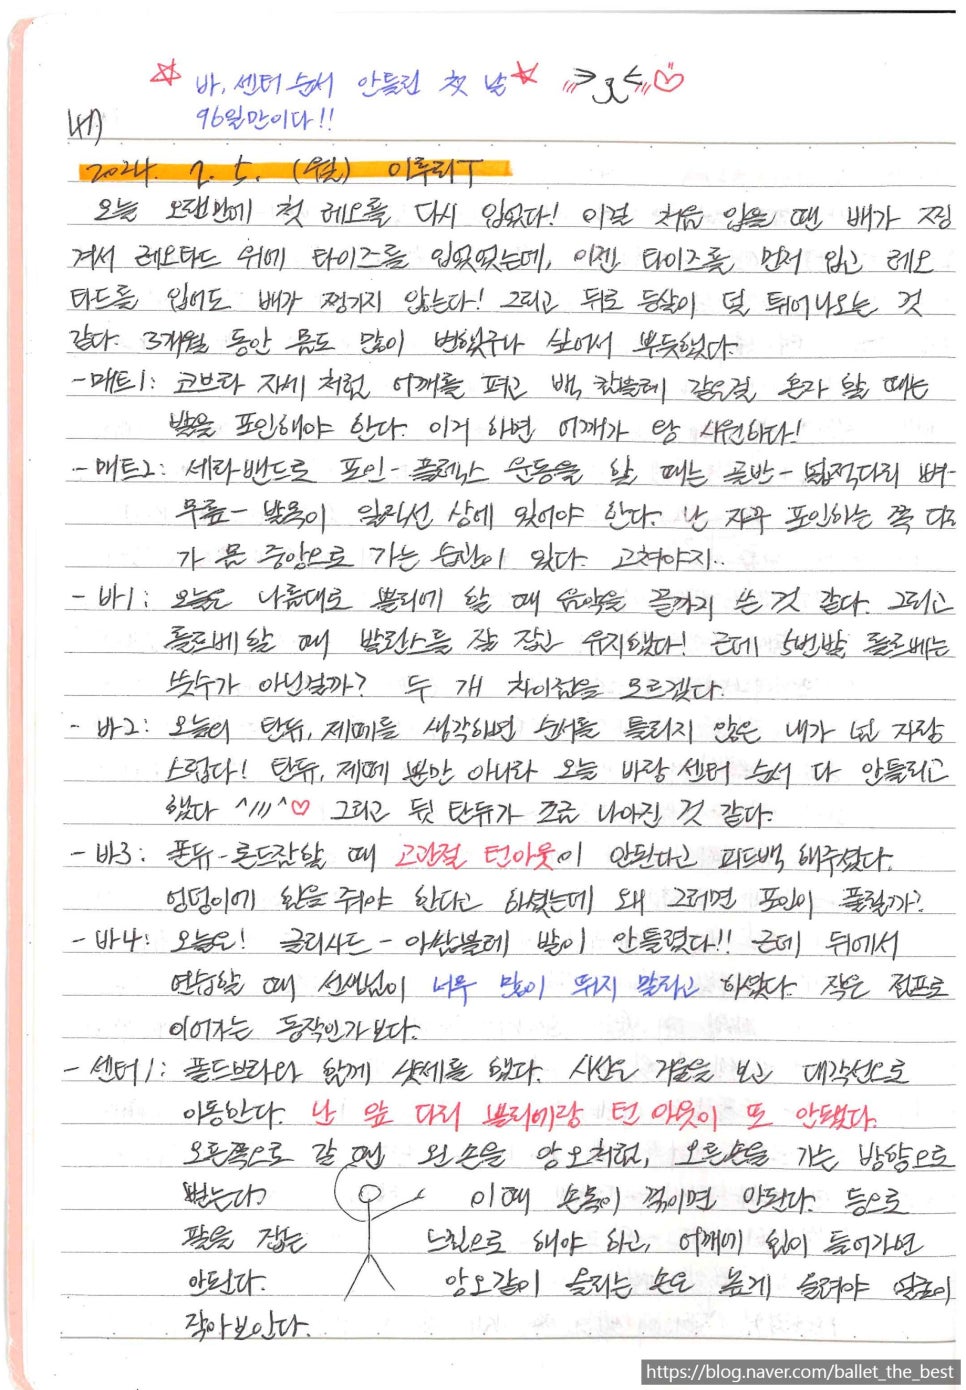 바, 센터 순서 안틀린 첫 날
96일만이다!!
2024. 2. 5. (월) 이루리T
오늘 오랜만에 첫 레오를 다시 입었다! 이걸 처음 입을 땐 배가 찡
겨서 레오타드 위에 타이즈를 입었었는데, 이젠 타이즈를 먼저 입고 레오
타드를 입어도 배가 찡기지 않는다! 그리고 뒤로 등살이 덜 튀어나오는 것
같다. 3개월 동안 몸도 많이 변했구나 싶어서 뿌듯했다.
-매트1: 코브라 자세처럼 어깨를 펴고 백 캄블레 같은걸 혼자 할 때는
발을 포인해야 한다. 이거 하면 어깨가 왕 시원하다!
-매트2: 세라밴드로 포인-플렉스 운동을 할 때는 골반-넓적다리 뼈-
무릎-발목이 일직선 상에 있어야 한다. 난 자꾸 포인하는 쪽 다리
가 몸 중앙으로 가는 습관이 있다. 고쳐야지..
- 바1: 오늘은 나름대로 쁠리에 할 때 음악을 끝까지 쓴 것 같다. 그리고
를르베 할 때 발란스를 잘 잡고 유지했다! 근데 5번발 를르베는
쑤쑤가 아닌걸까? 두 개 차이점을 모르겠다.
- 바2: 오늘의 탄듀, 제떼를 생각하면 순서를 틀리지 않은 내가 넘 자랑
스럽다! 탄듀, 제떼 뿐만 아니라 오늘 바랑 센터 순서 다 안틀리고
했다 ^///^♡ 그리고 뒷 탄듀가 조금 나아진 것 같다.
- 바3: 폰듀-론드잠할 때 고관절 턴아웃이 안된다고 피드백 해주셨다.
엉덩이에 힘을 줘야 한다고 하셨는데 왜 그러면 포인이 풀릴까?
- 바4: 오늘은! 글리사드-아쌈블레 발이 안틀렸다!! 근데 뒤에서
연습할 때 선생님이 너무 많이 뛰지 말라고 하셨다. 작은 점프로
이어지는 동작인가보다.
- 센터1: 폴드브라와 함께 샷세를 했다. 시선은 거울을 보고 대각선으로
이동한다. 난 앞 다리 쁠리에랑 턴 아웃이 또 안됐다.
오른쪽으로 갈 땐 왼 손을 앙오처럼, 오른손을 가는 방향으로
뻗는다. 이때 손목이 꺾이면 안된다. 등으로
팔을 잡는 느낌으로 해야 하고, 어깨에 힘이 들어가면
안된다. 앙오같이 올리는 손은 높게 올려야 얼굴이
작아보인다.
https://blog.naver.com/ballet_the_best